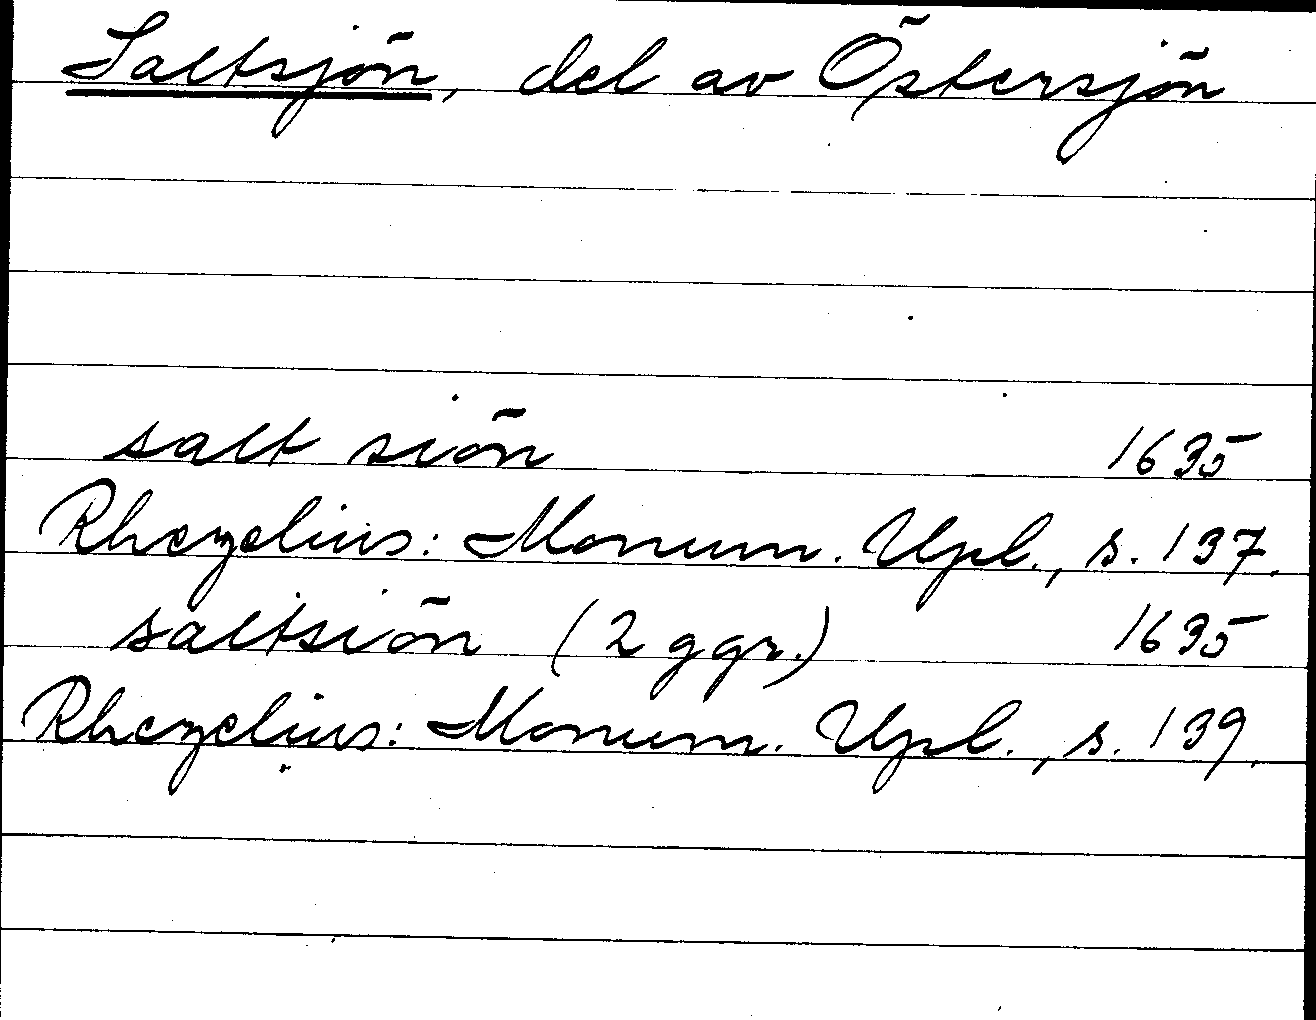 Saltsjön, del av Östersjön
salt siön 1635
Rhezelius: Monum. Upl., s. 137.
saltsiön (2 ggr.) 1635
Rhezelius: Monum. Upl., s. 139.